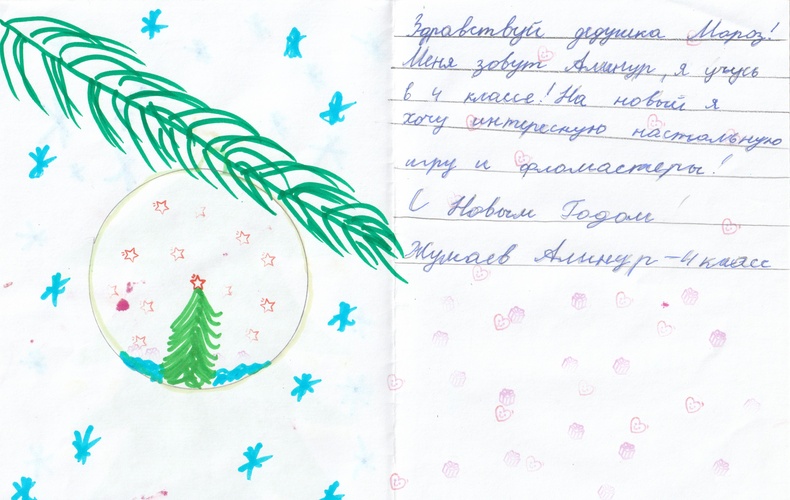 Здравствуй дедушка Мороз!
Меня зовут Алинур, я учусь
в 4 классе! На новый я
хочу интерксную настальную
игру и фломастеры!
С Новым Годом!
Жумаев Алинур - 4 класс